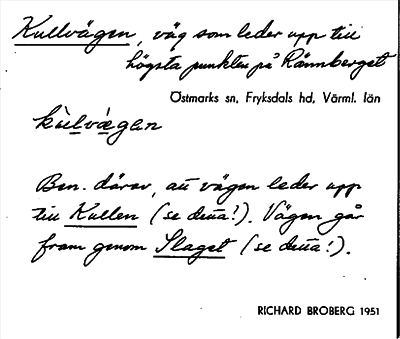 Kullvägen, väg som leder upp till
högsta punkten på Rännberget
Östmarks sn, Fryksdals hd, Värml. län
kùlvǟgan
Ben. därav, att vägen leder upp
till Kullen (se detta!). Vägen går
fram genom Slaget (se detta!).
RICHARD BROBERG 1951